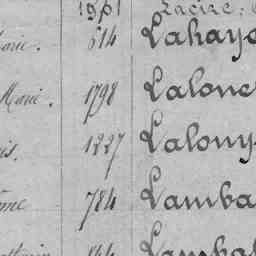 1961 Lacire,
Marie. 614 Lahaye
Marie. 1798 Lalone
is. 1227 Lalony
me 784 Lamba
Lambal